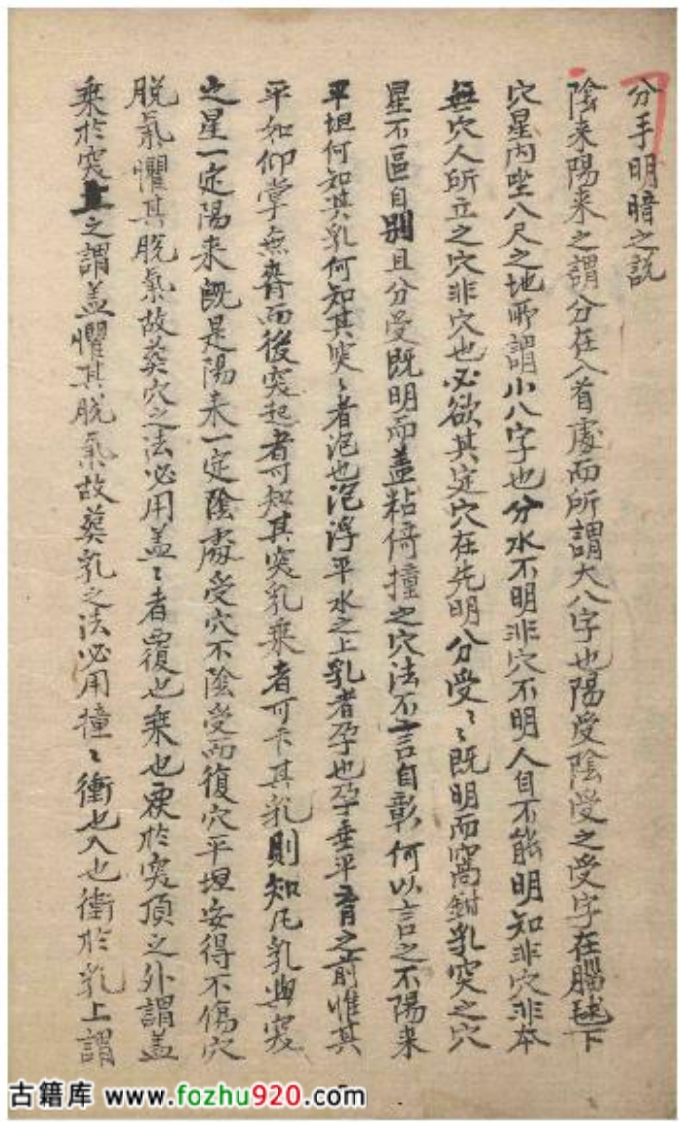 分手明暗之説
陰来陽来之謂分在八首處而所謂大八字也陽受陰受之受字在腦毬下
穴星内坐八尺之地所謂小八字也分水不明非穴不明人自不能明知非穴非本
無穴人所立之穴非穴也必欲其定穴在先明分受〻既明而窩鉗乳突之穴
星不區自别且分受既明而盖粘倚撞之穴法不言自彰何以言之不陽来
平坦何知其乳何知其突〻者泡也泡浮平水之上乳者孕也孕垂平之前惟其
平如仰掌無脊而後突起者可知其突乳乘者可下其乳則知凡乳與突
之星一定陽来既是陽来一定陰處受穴不陰受而復穴平坦安得不傷穴
脱氣懼其脱氣故葬穴之法必用盖〻者覆也乘也覆於突頂之外謂盖
乘於突之謂盖懼其脱氣故葬乳之法必用撞〻衝也入也衝於乳上謂
古籍库 www.fozhu920.com